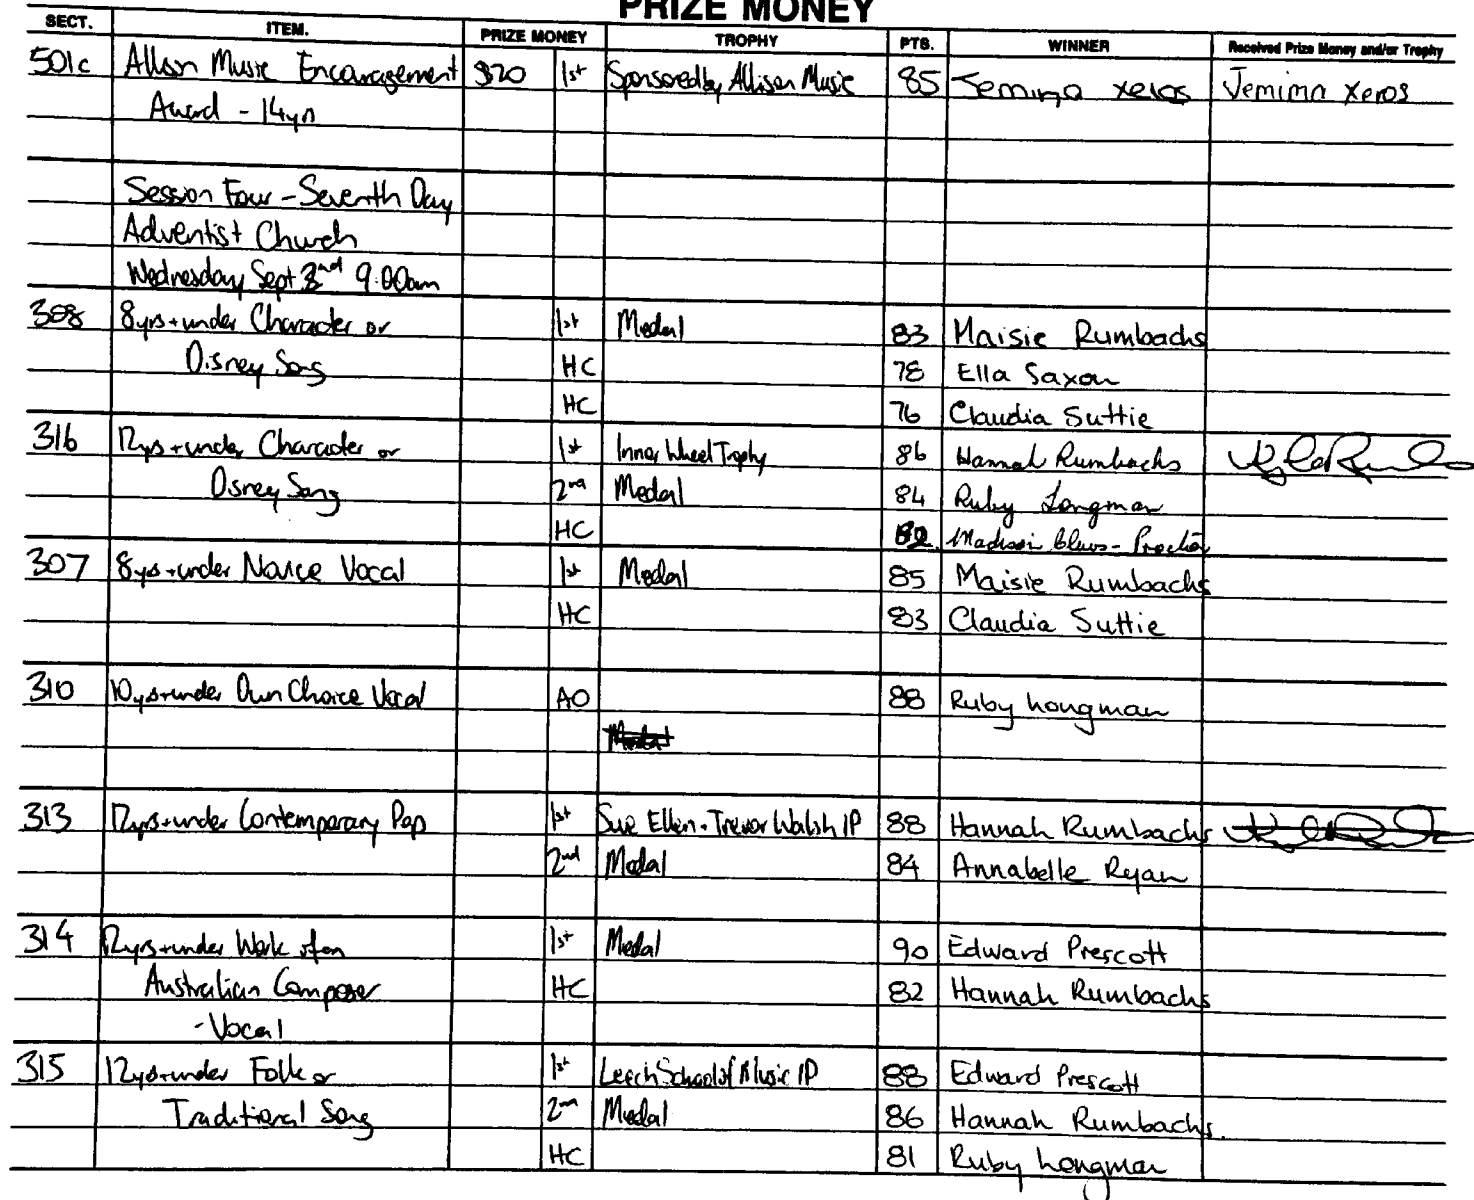 PRIZE MONEY
SECT. ITEM. PRIZE MONEY TROPHY PTS. WINNER Received Prize Money and/or Trophy
501c Allison Music Encouragement $20 1st Sponsored by Allison Music 85 Jemima Xeros Jemima Xeros
Award - 14yrs
Session Four - Seventh Day
Adventist Church
Wednesday Sept 2nd 9.00am
308 8yrs + under Character or 1st Medal 83 Maisie Rumbachs
Disney Song HC 78 Ella Saxon
HC 76 Claudia Suttie
316 12yrs + under Character or 1st Inner Wheel Trophy 86 Hannah Rumbachs
Disney Song 2nd Medal 84 Ruby Longman
HC 82 Madison - Proctor
307 8yrs + under Novice Vocal 1st Medal 85 Maisie Rumbachs
HC 83 Claudia Suttie
310 10yrs + under Own Choice Vocal AO 88 Ruby Longman
Medal
313 12yrs + under Contemporary Pop 1st Sue Ellen + Trevor Walsh IP 88 Hannah Rumbachs
2nd Medal 84 Annabelle Ryan
314 12yrs + under Work of an 1st Medal 90 Edward Prescott
Australian Composer HC 82 Hannah Rumbachs
- Vocal
315 12yrs + under Folk or 1st Leech School of Music IP 88 Edward Prescott
Traditional Song 2nd Medal 86 Hannah Rumbachs.
HC 81 Ruby Longman